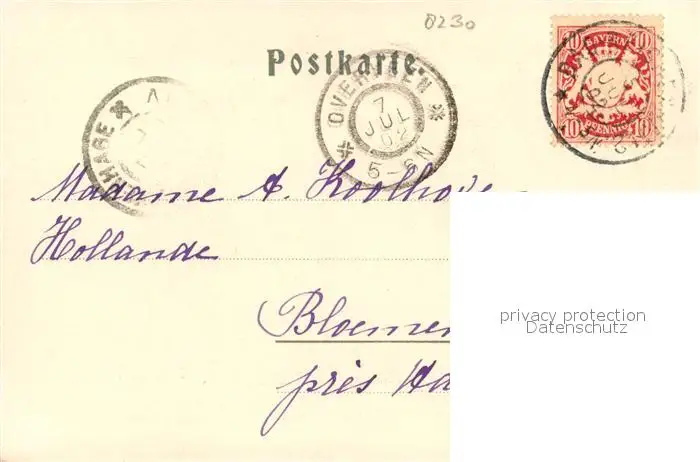 0230
Postkarte.
BAYERN
10 10
10 PFENNIG 10
OVERVEEN
7
JUL
02
5-6N
Madame A. Koolhove
Hollande
Bloemen
près Ha
privacy protection
Datenschutz